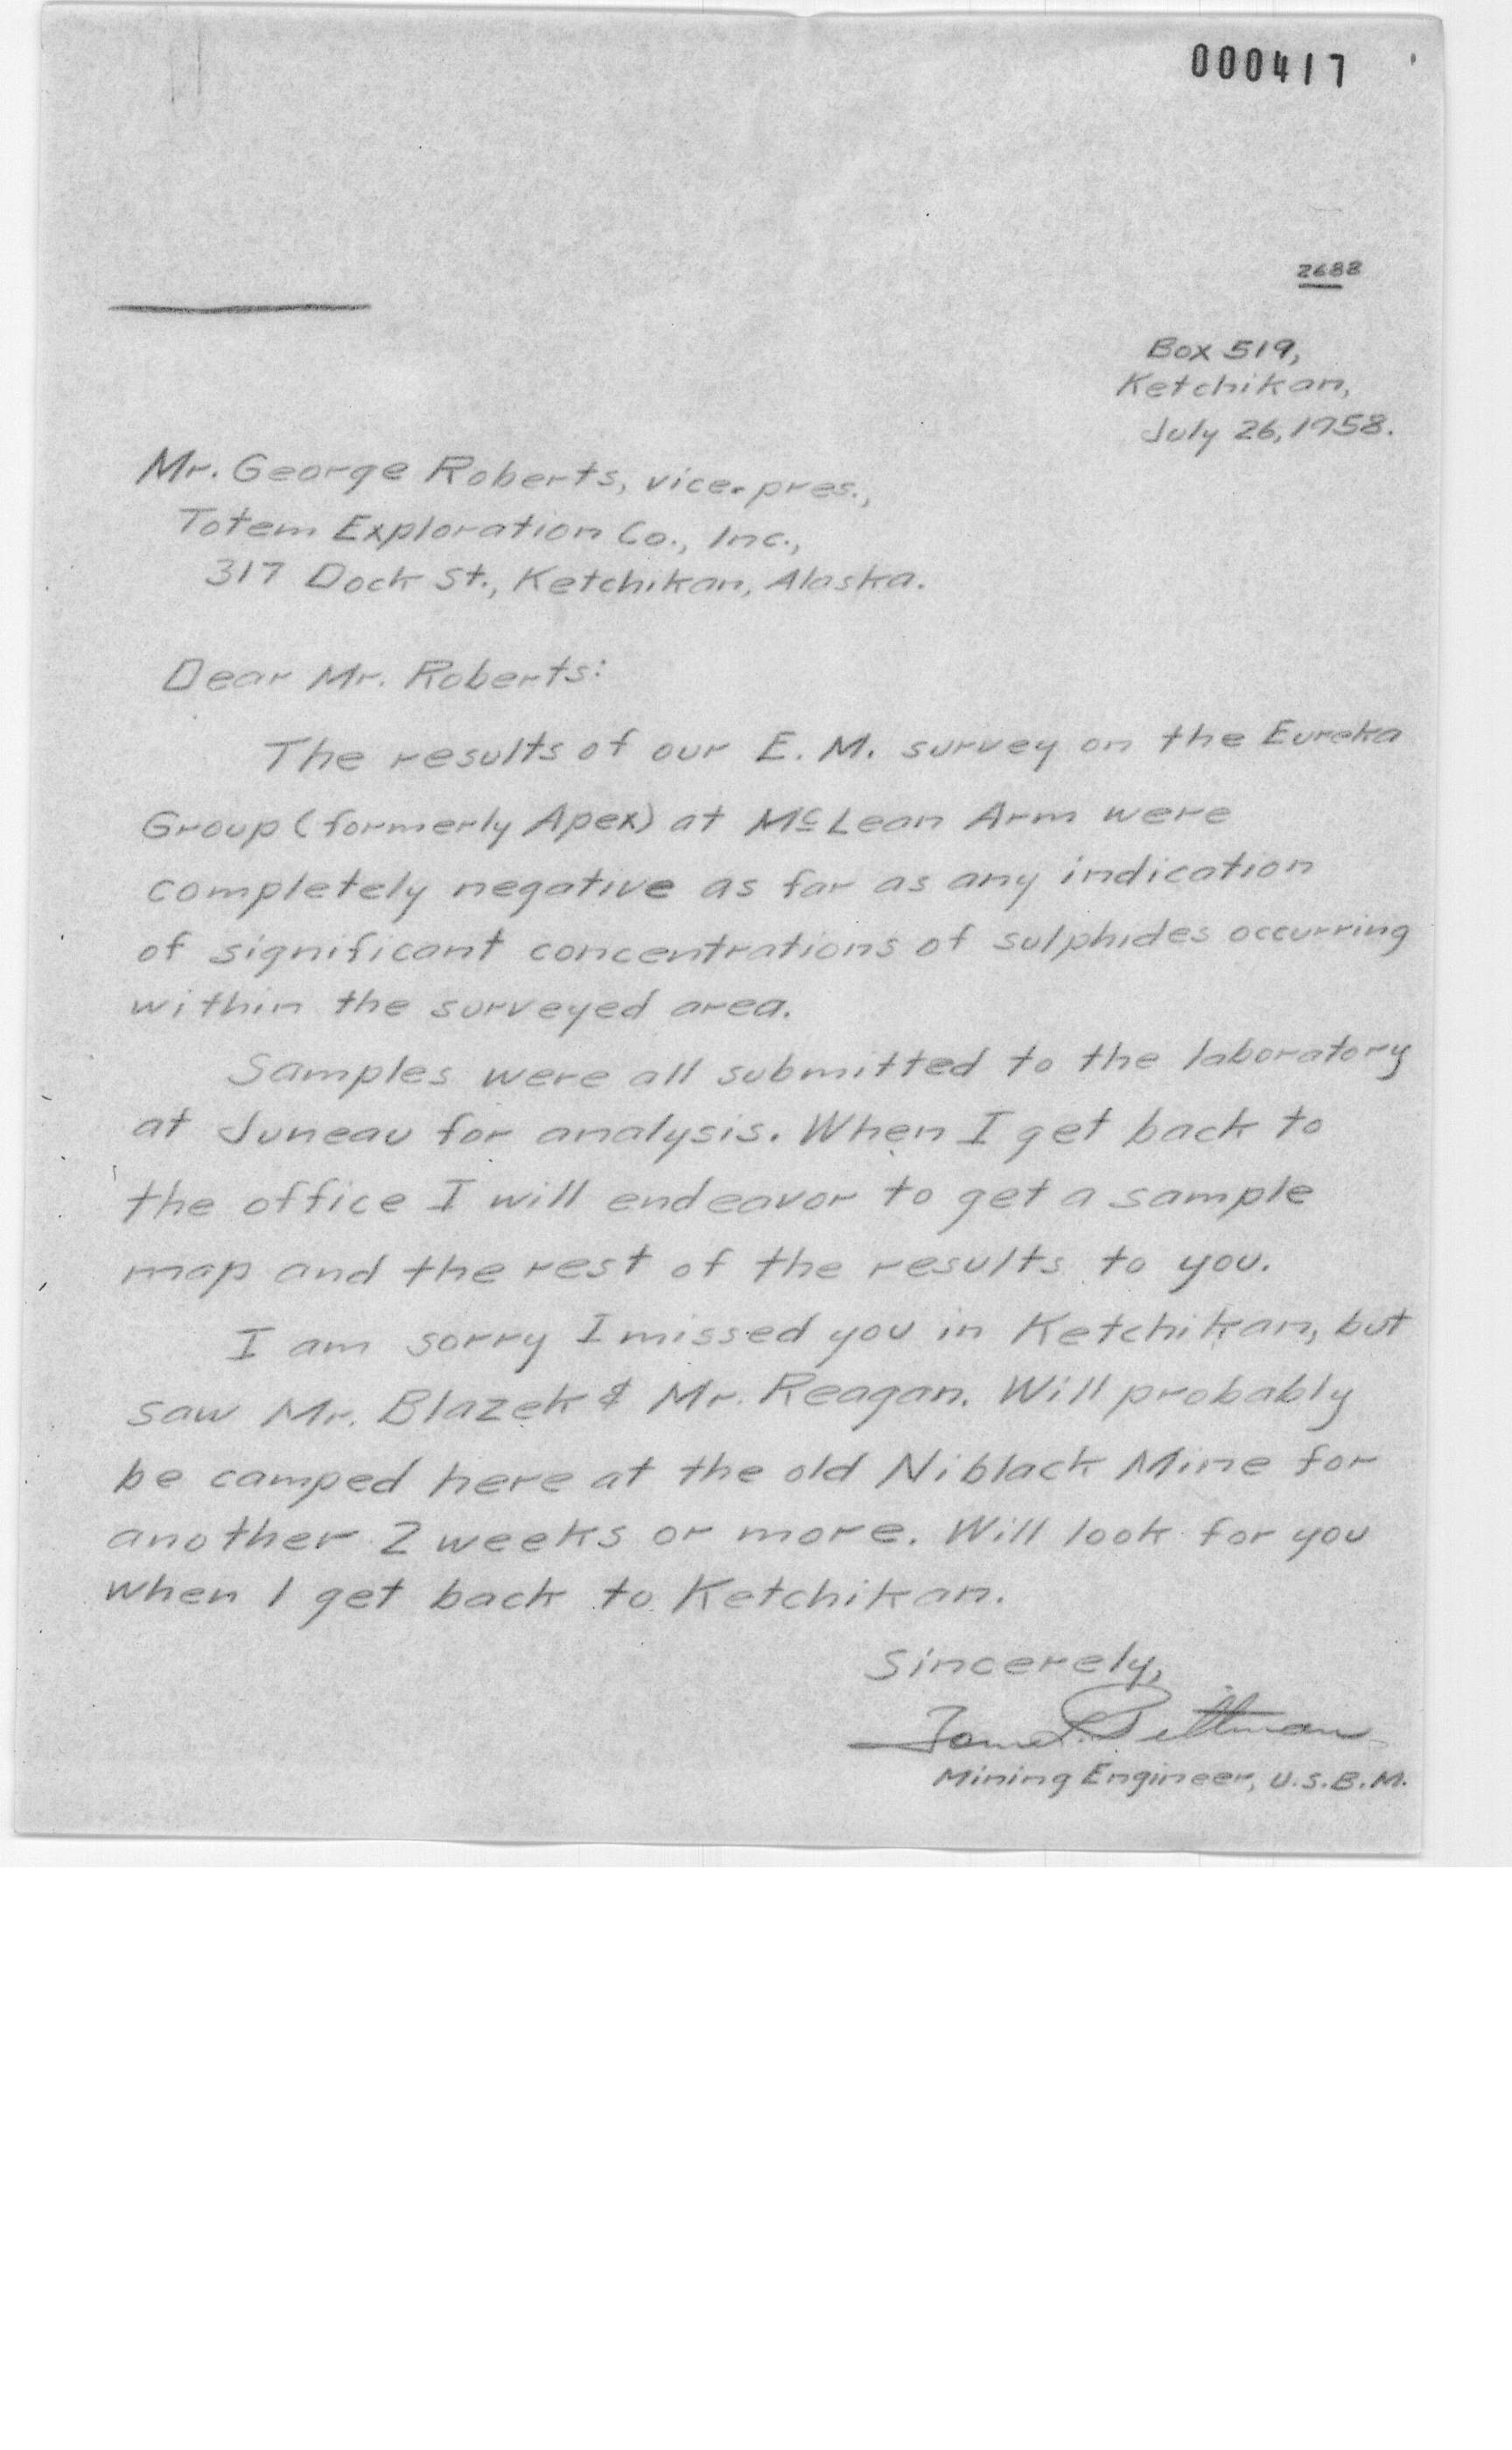 000417
2688
Box 519,
Ketchikan,
July 26, 1958.
Mr. George Roberts, vice-pres.,
Totem Exploration Co., Inc.,
317 Dock St., Ketchikan, Alaska.
Dear Mr. Roberts:
The results of our E. M. survey on the Eureka
Group (formerly Apex) at McLean Arm were
completely negative as far as any indication
of significant concentrations of sulphides occurring
within the surveyed area.
Samples were all submitted to the laboratory
at Juneau for analysis. When I get back to
the office I will endeavor to get a sample
map and the rest of the results to you.
I am sorry I missed you in Ketchikan, but
saw Mr. Blazek & Mr. Reagan. Will probably
be camped here at the old Niblack Mine for
another 2 weeks or more. Will look for you
when I get back to Ketchikan.
Sincerely,
Pittman
Mining Engineer, U.S.B.M.